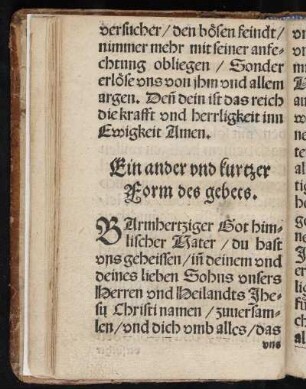 versucher / den bösen feindt /
nimmer mehr mit seiner anfe-
chtung obliegen / Sonder
erlöse vns von jhm vnd allem
argen. Deñ dein ist das reich
die krafft vnd herrligkeit inn
Ewigkeit Amen.
Ein ander vnd kurtzer
Form des gebets.
BArmhertziger Got him-
lischer Vater / du hast
vns geheissen / in̄ deinem vnd
deines lieben Sohns vnsers
Herren vnd Heilandts Jhe-
su Christi namen / zuuersam-
len / vnd dich vmb alles / das
vns